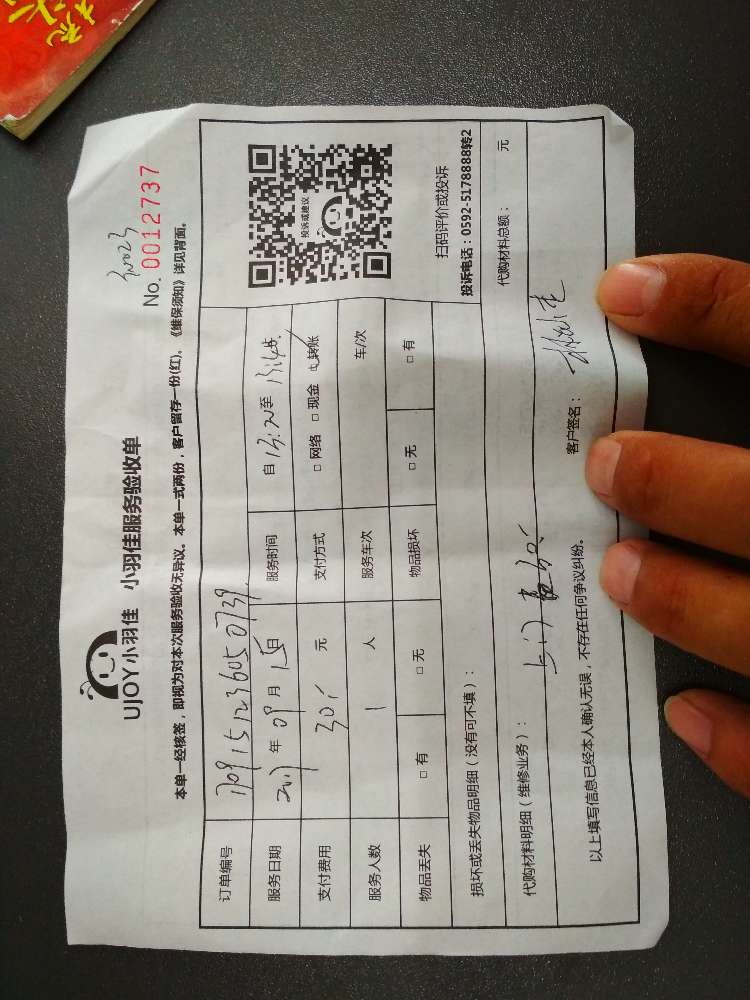 UJOY小羽佳 小羽佳服务验收单
30023
No. 0012737
本单一经核签，即视为对本次服务验收无异议。本单一式两份，客户留存一份(红)。《维保须知》详见背面。
订单编号 170915123605 0739
服务日期 2017 年 09 月 15 日 服务时间 自 13:20 至
支付费用 30 元 支付方式 □ 网络 □ 现金 ☑ 转账
服务人数 1 人 服务车次 车/次
物品丢失 □ 有 □ 无 物品损坏 □ 无 □ 有
投诉或建议
扫码评价或投诉
投诉电话：0592-5178888转2
损坏或丢失物品明细（没有可不填）：
代购材料明细（维修业务）： 上门费30 代购材料总额： 元
以上填写信息已经本人确认无误，不存在任何争议纠纷。 客户签名：